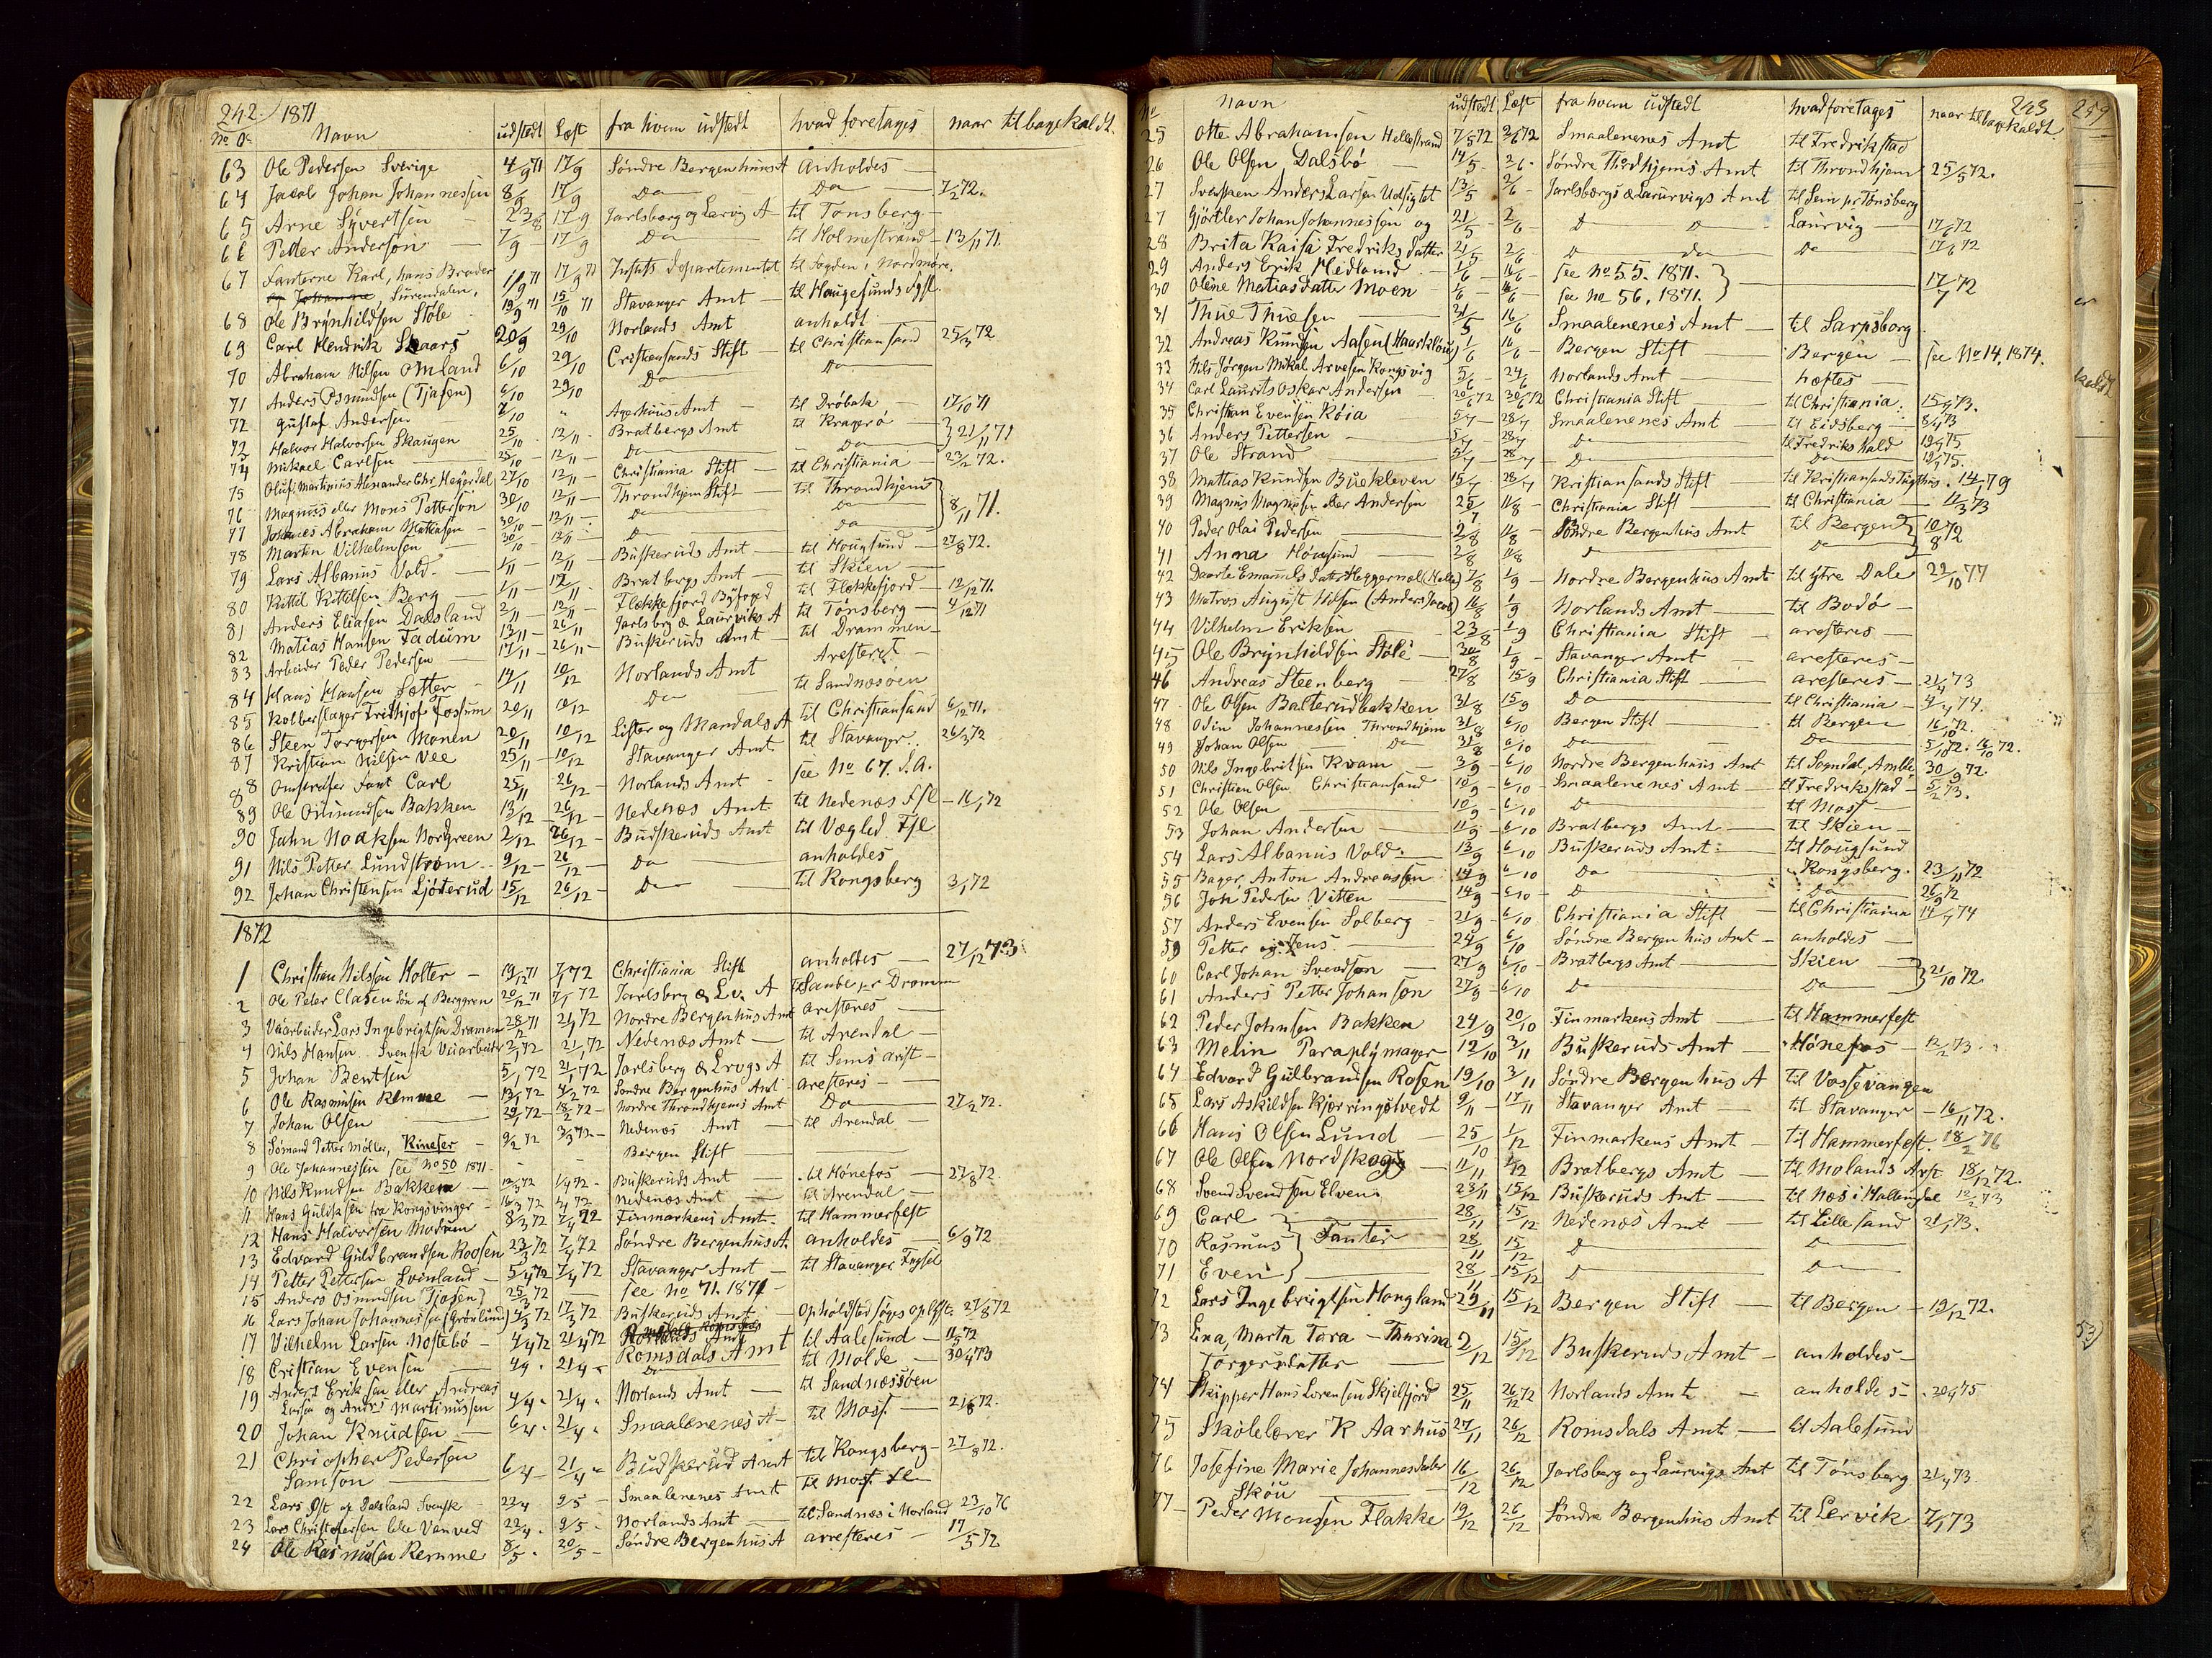 242. 1871
No O. Navn udstedt Læst fra hvem udstedt hvad foretages naar tilbagekaldt.
63 Ole Pedersen Sverige 4/9 71 17/9 Søndre Bergenhuus A anholdes —
64 Jacob Johan Johannessen 8/9 17/9 Do Do 7/2 72.
65 Arne Syvertsen — 23/8 17/9 Jarlsberg og Larvig A — til Tønsberg —
66 Peder Anderson — 7/9 17/9 Do til Holmestrand — 13/11 71.
67 Fanterne Karl, hans Broder 1/9 71 17/9 71 Justits Departementet til Fogden i Nordmøre.
Surendalen,
68 Ole Brynhildsen Støle 19/9 71 15/10 71 Stavanger Amt — til Haugesunds dgst.
69 Carl Hendrik Skaars 20/9 29/10 Norlands Amt anholdt
70 Abraham Nilsen Omland 6/10 29/10 Cristiansands Stift — til Christiansand 25/3 72
71 Anders Osmundsen (Tjøsen) 6/10 29/10 Do Do
72 Gustaf Andersen 2/10 " Agerhuus Amt — til Drøbak — 17/10 71
73 Halvor Halvorsen Skaugen 25/10 12/11 Bratbergs Amt til Kragerø — } 21/11 71
74 Mikael Carlsen 25/10 12/11 Do Do
75 Oluf Martinius Alexander Chr. Heyerdal 27/10 12/11 Christiania Stift — til Christiania 23/2 72.
76 Magnus eller Mons Pettersøn 30/10 12/11 Throndhjem Stift — til Throndhjem } 8/11 71.
77 Johannes Abraham Mathiasen 30/10 12/11 Do Do
78 Martin Vilhelmsen 30/10 12/11 Do Do
79 Lars Albanus Vold. 1/11 12/11 Buskeruds Amt til Hougsund — 27/8 72.
80 Kittil Kittilsen Berg — 1/11 12/11 Bratbergs Amt — til Skien —
81 Anders Eliasen Dalsland 2/11 12/11 Flekkefjord Byfoged til Flekkefjord — 12/12 71.
82 Matias Hansen Fadum 13/11 26/11 Jarlsberg & Laurviks A til Tønsberg — 4/12 71
83 Arbeider Peder Pedersen 17/11 26/11 Buskeruds Amt — til Drammen —
84 Hans Hansen Sætter 14/11 10/12 Norlands Amt Aresteret —
85 Kolbersager Fridhjof Fossum 20/11 10/12 Do til Sandnæsøen
86 Steen Torgersen Monen 20/11 10/12 Lister og Mandals A til Christiansand 6/12 71.
87 Kristian Nilsen Vee 25/11 10/12 Stavanger Amt. til Stavanger. 26/3 72
88 Omstreifer Fant Carl 25/11 26/12 Norlands Amt see No 67. d.A.
89 Ole Osmundsen Bakken 13/12 26/12 Nedenæs Amt til Nedenæs Fsl — 16/1 72
90 John Noaksen Norgreen 2/12 26/12 Budskeruds Amt til Væglid. Fsl
91 Nils Petter Lundstrøm 9/12 26/12 Do anholdes
92 Johan Christensen Ljøterud 15/12 26/12 Do til Kongsberg 3/1 72
1872
1 Christian Nilssen Holter — 19/12 71 7/1 72 Christiania Stift anholdes — 27/12 73
2 Ole Peter Clasen Søn af Berggren 20/12 71 7/1 72 Jarlsbrg & Lv. A
3 Vaarbeider Lars Ingebrigtsen Dramen 28/12 71 21/1 72 Nordre Bergenhus Amt aresteres —
4 Nils Hansen. Svensk Vaarbeider 2/1 72 21/1 72 Nedenæs Amt — til Arendal —
5 Johan Bentsen 5/1 72 21/1 72 Jarlsberg & Lrvgs A til Sems arist —
6 Ole Rasmusen Remme — 13/1 72 4/2 72 Søndre Bergenhus Amt aresteres —
7 Johan Olsen 29/1 72 18/2 72 Nordre Throndhjems Amt Do 27/2 72.
8 Sømand Petter Møller, Kineser 9/2 72 3/3 72 Nedenæs Amt til Arendal —
9 Ole Johannessen see No 50 1871. Bergen Stift
10 Nils Knudsen Bakken 12/3 72 1/4 72 Buskeruds Amt — til Hønefos 27/8 72.
11 Hans Guliksen fra Kongsvinger — 16/3 72 1/4 72 Nedenæs Amt til Arendal —
12 Hans Halvorsen Modum 8/3 72 7/4 72 Finmarkens Amt. til Hammerfest
13 Edvard Guldbrandsen Roosen 23/3 72 7/4 72 Søndre Bergenhus A. anholdes — 6/9 72
14 Petter Pettersen Svinland — 5/4 72 7/4 72 Stavanger Amt — til Stavanger Fngsel
15 Anders Osmundsen (Tjøsen) 25/3 72 see No 71. 1871
16 Lars Johan Johannessen (Grønlund) 4/3 72 17/3 72 Buskeruds Amt. — Opholdsted søges oplyst 27/8 72
17 Vilhelm Larsen Mostebø — 4/4 72 21/4 72 Romsdals Amt til Aalesund — 11/5 72
18 Cristian Evensen 4/4 21/4 Do til Molde — 30/4 73
19 Anders Eriksen eller Andreas 4/4 21/4 Norlands Amt — til Sandnæssøen
Larsen og Andrs Martinussen
20 Johan Knudsen 6/4 21/4 Smaalenenes A — til Moss. 21/8 72.
21 Chriopher Pedersen 6/4 21/4 Budskerud Amt til Kongsberg — 27/8 72.
Samson
22 Lars Ost af Dalsland Svensk — 22/4 9/5 Smaalenenes Amt til Moss. Fl
23 Lars Christofersen lille Vanved 22/4 9/5 Norlands Amt — til Sandnæs i Norland 23/10 76
24 Ole Rasmusen Remme 8/5 20/5 Søndre Bergenhus A arresteres — 17/5 72
No Navn udstedt Læst fra hvem udstedt hvad foretages naar tilbagekaldt 243
25 Otte Abrahamsen Hellestrand 7/5 72 2/6 72 Smaalenenes Amt til Fredrikstad
26 Ole Olsen Dalsbø — 14/5 2/6 Søndre Thrdhjems Amt til Throndhjem 25/5 72.
27 Svensken Anders Larsen Udsigtet 13/5 2/6 Jarlsbergs & Laurvigs Amt til Sem pr Tønsberg
27 Gjørtler Johan Johannessen og 21/5 2/6 Do Do Laurvig — 17/6 72
28 Brita Kaisa Fredriksdatter 21/5 2/6 Do Do Do 17/6 72
29 Anders Erik Hedlund — 1/6 16/6 see No 55. 1871. } 17/7 72
30 Oline Matiasdatter Moen — 1/6 16/6 see No 56, 1871.
31 Thue Thuesen 31/5 16/6 Smaalenenes Amt — til Sarpsborg
32 Andreas Knudsen Aasen (Haarklou) 1/6 16/6 Bergen Stift Bergen — see No 14. 1874.
33 Nils Jørgen Mikal Arvesen Kongsvig 5/6 24/6 Norlands Amt hæftes —
34 Carl Laurits Oskar Andersen 20/6 72 30/6 72 Christiania Stift til Christiania: 15/9 73.
35 Christian Evensen Røia 5/7 28/7 Smaalenenes Amt — til Eidsberg — 8/4 73
36 Anders Pettersen 5/7 28/7 Do til Fredrikshald 19/9 75
37 Ole Strand 5/7 28/7 Do Do 19/9 75.
38 Mathias Knudsen Buekleven 15/7 28/7 Kristiansands Stift til Kristiansands Tugthus. 14/1 79
39 Magnus Magnusen eller Andersen 25/7 11/8 Christiania Stift — til Christiania — 11/3 73
40 Peder Olai Pedersen 2/8 11/8 Søndre Bergenhus Amt til Bergen } 10/8 72
41 Anna Høiesund 2/8 11/8 Do Do
42 Daarte Emanuelsdatter Heggernæs (Helle) 7/8 1/9 Nordre Bergenhus Amt til ytre Dale 22/10 77
43 Matros August Nilsen (Anders Jacob) 16/8 1/9 Norlands Amt — til Bodø —
44 Vilhelm Eriksen 23/8 1/9 Christiania Stift — aresteres —
45 Ole Brynhildsen Støle — 30/8 1/9 Stavanger Amt — aresteres —
46 Andreas Steenberg — 27/8 15/9 Christiania Stift — aresteres — 21/4 73
47 Ole Olsen Balterudbakken 31/8 15/9 Do til Christiania — 9/4 74.
48 Odin Johannessen Throndhjem 31/8 6/10 Bergen Stift — til Bergen 16/10 72.
49 Johan Olsen Do 31/8 6/10 Do Do 5/10 72. 16/10 72.
50 Nils Ingebritsen Kvam 3/9 6/10 Nordre Bergenhuus Amt til Sogndal, Amble 30/9 72.
51 Christian Olsen. Christiansand 10/9 6/10 Smaalenenes Amt — til Fredriksstad — 5/2 73.
52 Ole Olsen 10/9 6/10 Do til Moss
53 Johan Andersen 11/9 6/10 Bratbergs Amt — til Skien —
54 Lars Albanus Vold 13/9 6/10 Buskeruds Amt. til Hougsund
55 Bager, Anton Andreassen 14/9 6/10 Do Kongsberg. 23/11 72
56 Joh Pedersen Vitten 14/9 6/10 Do Do 26/9 72
57 Anders Evensen Solberg 21/9 6/10 Christiania Stift — til Christiania 14/9 74
59 Petter og Jens. 24/9 6/10 Søndre Bergenhus Amt — anholdes —
60 Carl Johan Svendsøn 27/9 6/10 Bratbergs Amt Skien — } 21/10 72.
61 Anders Petter Johanson 27/9 6/10 Do Do
62 Peder Johnsen Bakken 24/9 20/10 Finmarkens Amt — til Hammerfest
63 Melin Paraplymager 12/10 3/11 Buskeruds Amt — Hønefos — 12/2 73.
64 Edvard Gulbrandsen Rosen 19/10 3/11 Søndre Bergenhus A til Vossevangen
65 Lars Askildsen Kjørringstvedt 9/11 17/11 Stavanger Amt — til Stavanger — 16/11 72.
66 Hans Olsen Lund — 25/10 1/12 Finmarkens Amt — til Hammerfest. 18/2 76
67 Ole Olsen Nordskog 11/11 1/12 Bratbergs Amt — til Molands Arst 18/12 72.
68 Svend Svendsen Elven. 23/11 15/12 Buskeruds Amt — til Næs i Hallingdal 12/2 73
69 Carl } 28/11 15/12 Nedenæs Amt — til Lillesand 21/1 73.
70 Rasmus } Fanter 28/11 15/12 Do Do
71 Even } 28/11 15/12 Do Do
72 Lars Ingebrigtsen Hougland 29/11 15/12 Bergen Stift — til Bergen — 19/12 72.
73 Lina, Marta Tora — Thurina 2/12 15/12 Buskeruds Amt — anholdes —
Torgersdatter
74 Skipper Hans Lorensen Skjelfjord 25/11 26/12 72 Norlands Amt — anholdes — 20/9 75
75 Skolelærer K Aarhus 27/11 26/12 Romsdals Amt — til Aalesund
76 Josefine Marie Johannesdatter 16/12 26/12 Jarlsberg og Laurvigs Amt til Tønsberg 21/4 73.
Skou
77 — Peder Monsen Flakke 19/12 26/12 Søndre Bergenhus Amt til Lervik 7/1 73
259